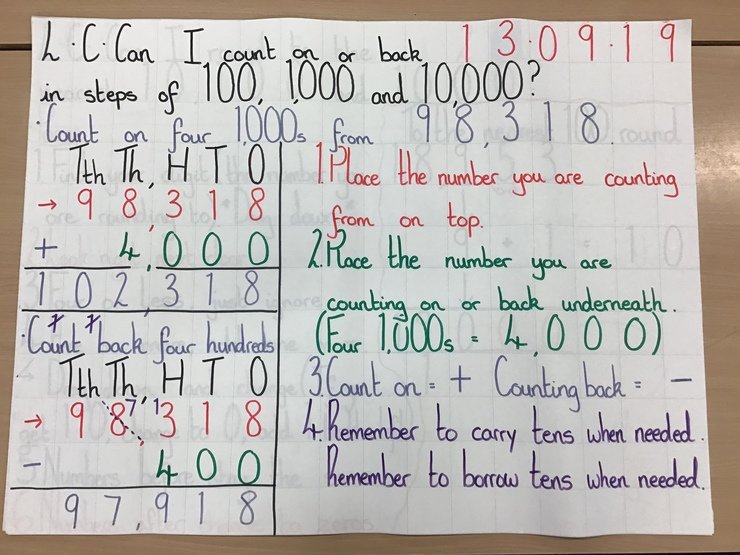 L.C. Can I count on or back 13.09.19
in steps of 100, 1,000 and 10,000?
Count on four 1,000s from 98,318.
Tth Th, H T O
→ 9 8, 3 1 8
+ 4, 0 0 0
1 0 2, 3 1 8
1 1
1. Place the number you are counting
from on top.
2. Place the number you are
counting on or back underneath.
(Four 1,000s = 4,000)
3. Count on = + Counting back = -
4. Remember to carry tens when needed.
Remember to borrow tens when needed.
Count back four hundreds
Tth Th, H T O
→ 9 8 7, 1 3 1 8
- 4 0 0
9 7, 9 1 8